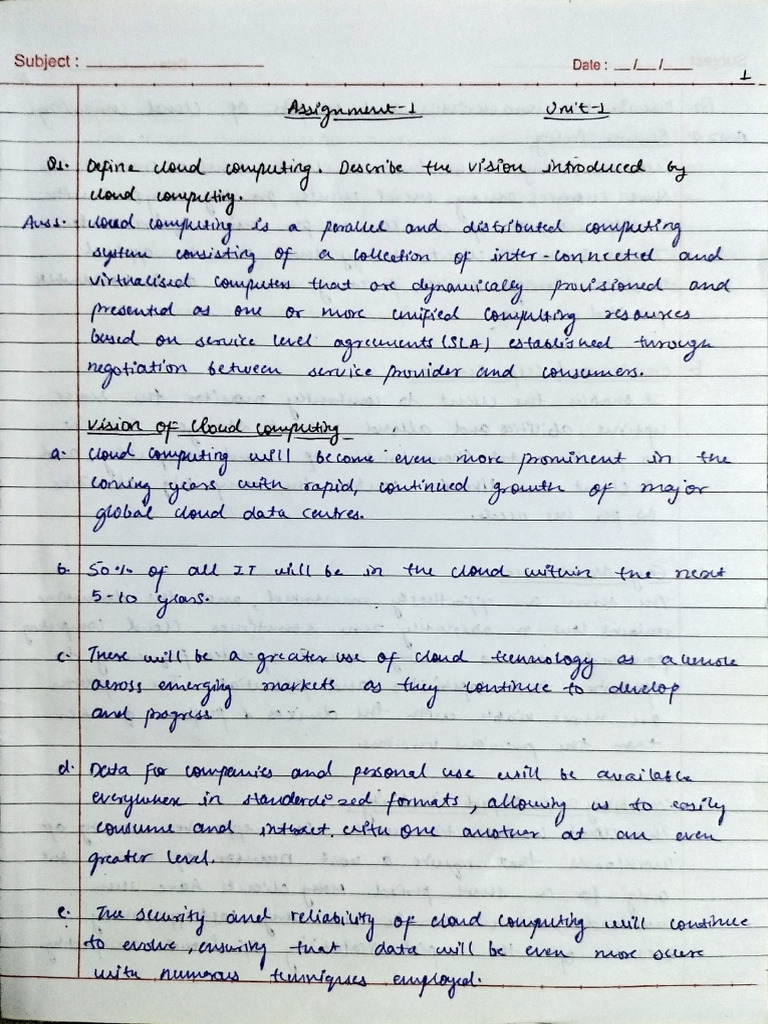 Subject :
Date : __/__/__
1
Assignment-1 Unit-1
Q1. Define cloud computing. Describe the vision introduced by
cloud computing.
Ans1. Cloud computing is a parallel and distributed computing
system consisting of a collection of inter-connected and
virtualised computers that are dynamically provisioned and
presented as one or more unified computing resources
based on service level agreements (SLA) established through
negotiation between service provider and consumers.
Vision of Cloud Computing
a. Cloud computing will become even more prominent in the
coming years with rapid, continued growth of major
global cloud data centres.
b. 50% of all IT will be in the cloud within the next
5-10 years.
c. There will be a greater use of cloud technology as a whole
across emerging markets as they continue to develop
and progress
d. Data for companies and personal use will be available
everywhere in standerdized formats, allowing us to easily
consume and interact with one another at an even
greater level.
e. The security and reliability of cloud computing will continue
to evolve, ensuring that data will be even more secure
with numerous techniques employed.